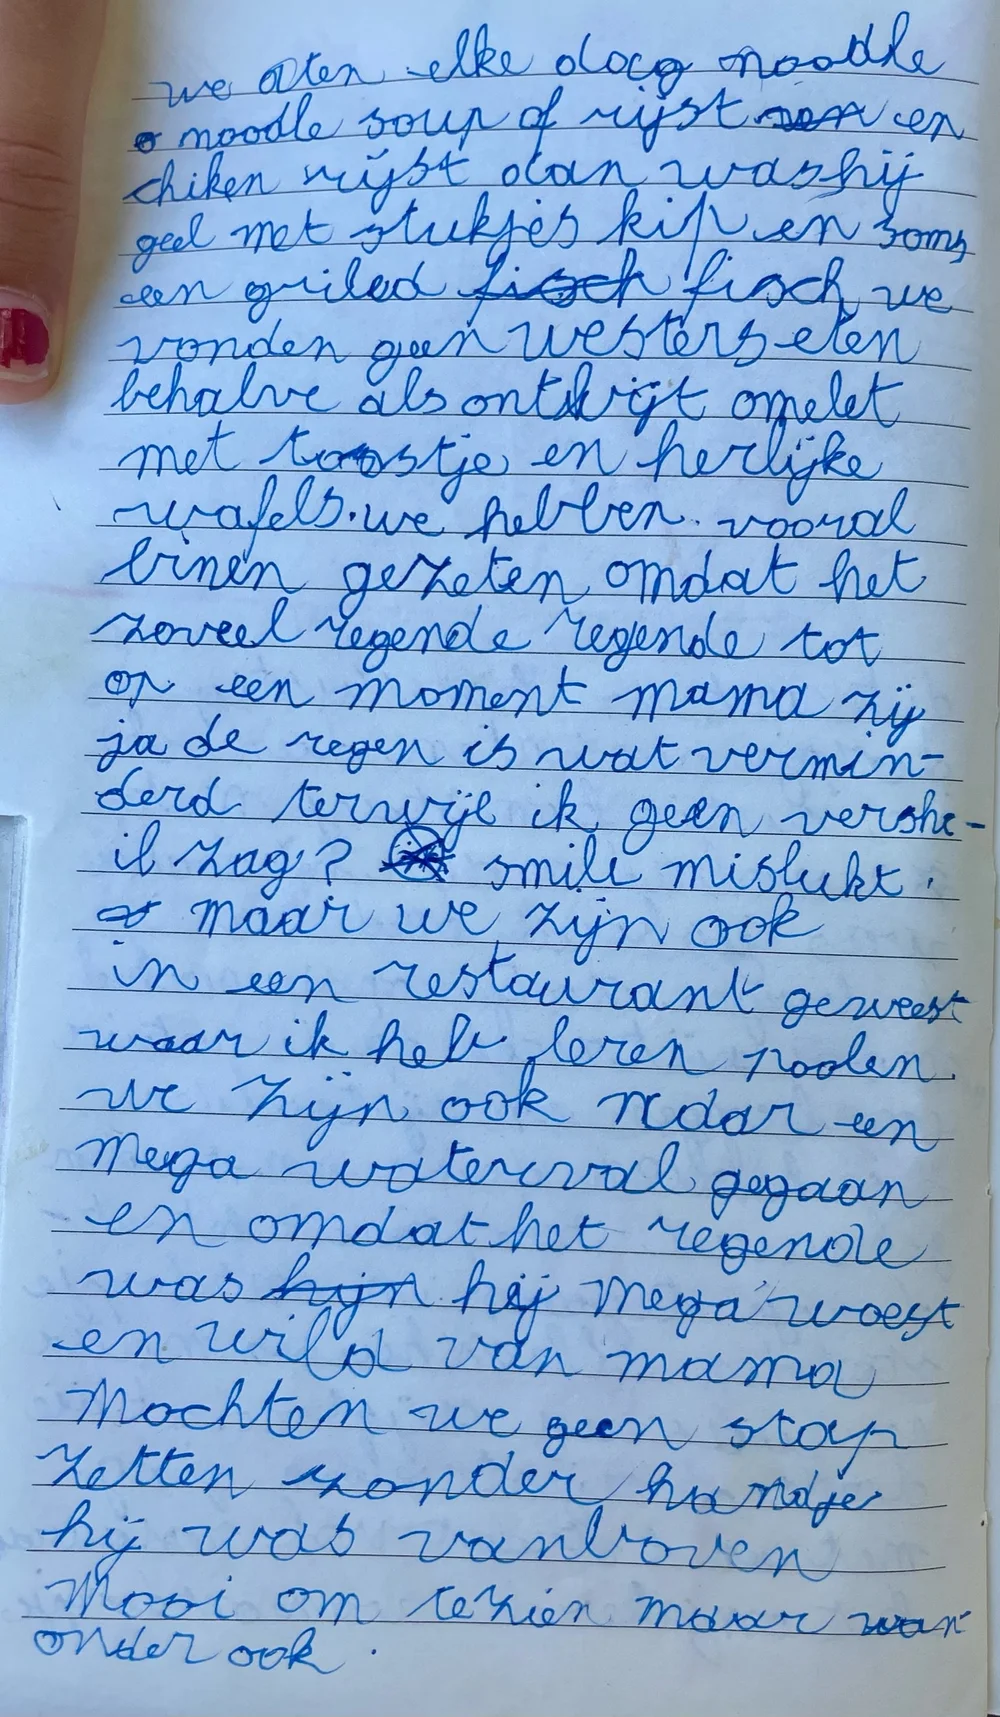 we aten elke dag noodle
noodle soup of rijst en
chiken rijst dan was hij
geel met stukjes kip en soms
een griled fisch fisch we
vonden geen westers eten
behalve als ontbijt omelet
met toostje en herlijke
wafels. we hebben vooral
binen gezeten omdat het
zoveel regende regende tot
op een moment mama zij
ja de regen is wat vermin-
derd terwijl ik geen vershe-
il zag? smili mislukt.
maar we zijn ook
in een restaurant geweest
waar ik heb leren poolen.
we zijn ook naar een
mega waterval gegaan
en omdat het regende
was hijn hij mega woest
en wild van mama
Mochten we geen stap
zetten zonder handje
hij was vanboven
Mooi om tezien maar van
onder ook.